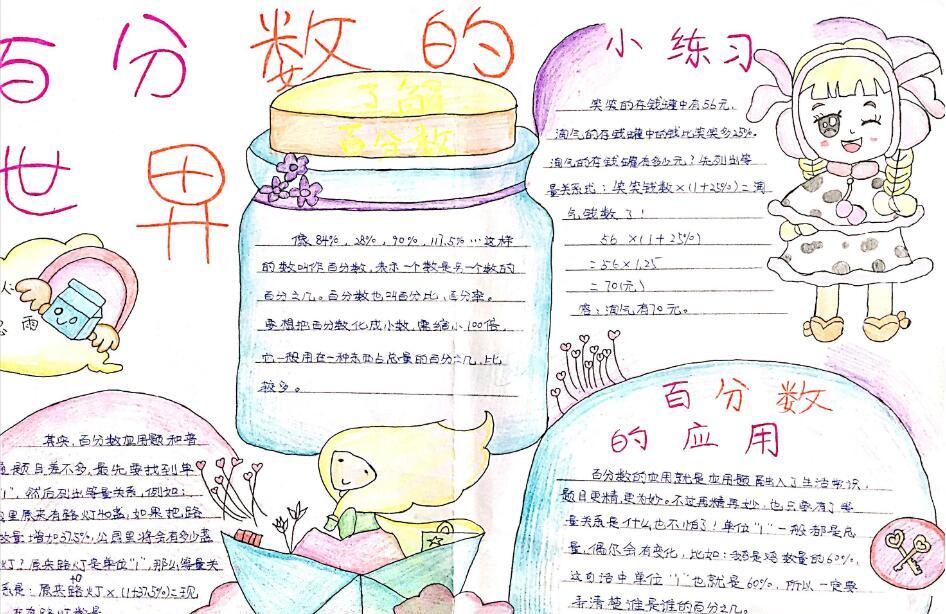 百分数的
世界
了解
百分数
像84%，28%，90%，117.5%…这样
的数叫作百分数，表示一个数是另一个数的
百分之几。百分数也叫百分比，百分率。
要想把百分数化成小数，需缩小100倍，
它一般用在一种东西占总量的百分之几，比
较多。
小练习
笑笑的存钱罐中有56元，
淘气的存钱罐中的钱比笑笑多25%。
淘气的存钱罐有多少元？先列出等
量关系式：笑笑钱数×(1+25%)=淘
气钱数了！
56×(1+25%)
=56×1.25
=70(元)
答：淘气有70元。
雨
其实，百分数应用题和普
题目差不多，最先要找到单
"1"，然后列出等量关系，例如：
里原来有路灯40盏，如果把路
数量增加37.5%，公园里将会有多少盏
灯？原来路灯是单位"1"，那么等量关
系是：原来路灯×(1+37.5%)=现
在有路灯数量
百分数
的应用
百分数的应用就是应用题写出入了生活常识，
题目更精更为妙。不过再精再妙，也只要有了等
量关系是什么也不怕了！单位"1"一般都是总
量，偶尔会有变化，比如：鹅是鸡数量的60%，
这句话中单位"1"也就是60%，所以一定要
弄清楚谁是谁的百分之几。